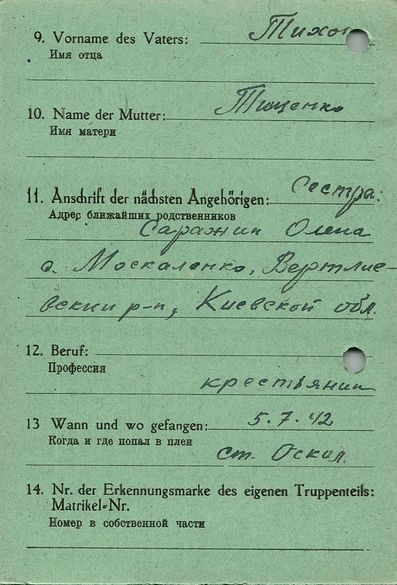 9. Vorname des Vaters: Тихон
Имя отца
10. Name der Mutter: Тищенко
Имя матери
11. Anschrift der nächsten Angehörigen: Сестра:
Адрес ближайших родственников
Саражин Олена
с. Москаленко, Вертлие-
вский р-н, Киевской обл.
12. Beruf:
Профессия
крестьянин
13 Wann und wo gefangen: 5.7.42
Когда и где попал в плен
ст. Оскол.
14. Nr. der Erkennungsmarke des eigenen Truppenteils:
Matrikel-Nr.
Номер в собственной части